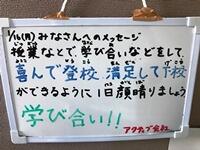 1/16(月)みなさんへのメッセージ
授業などで、学び合いなどをして、
喜んで登校、満足して下校
ができるように1日頑晴りましょう
学び合い!!
アクティブ会社